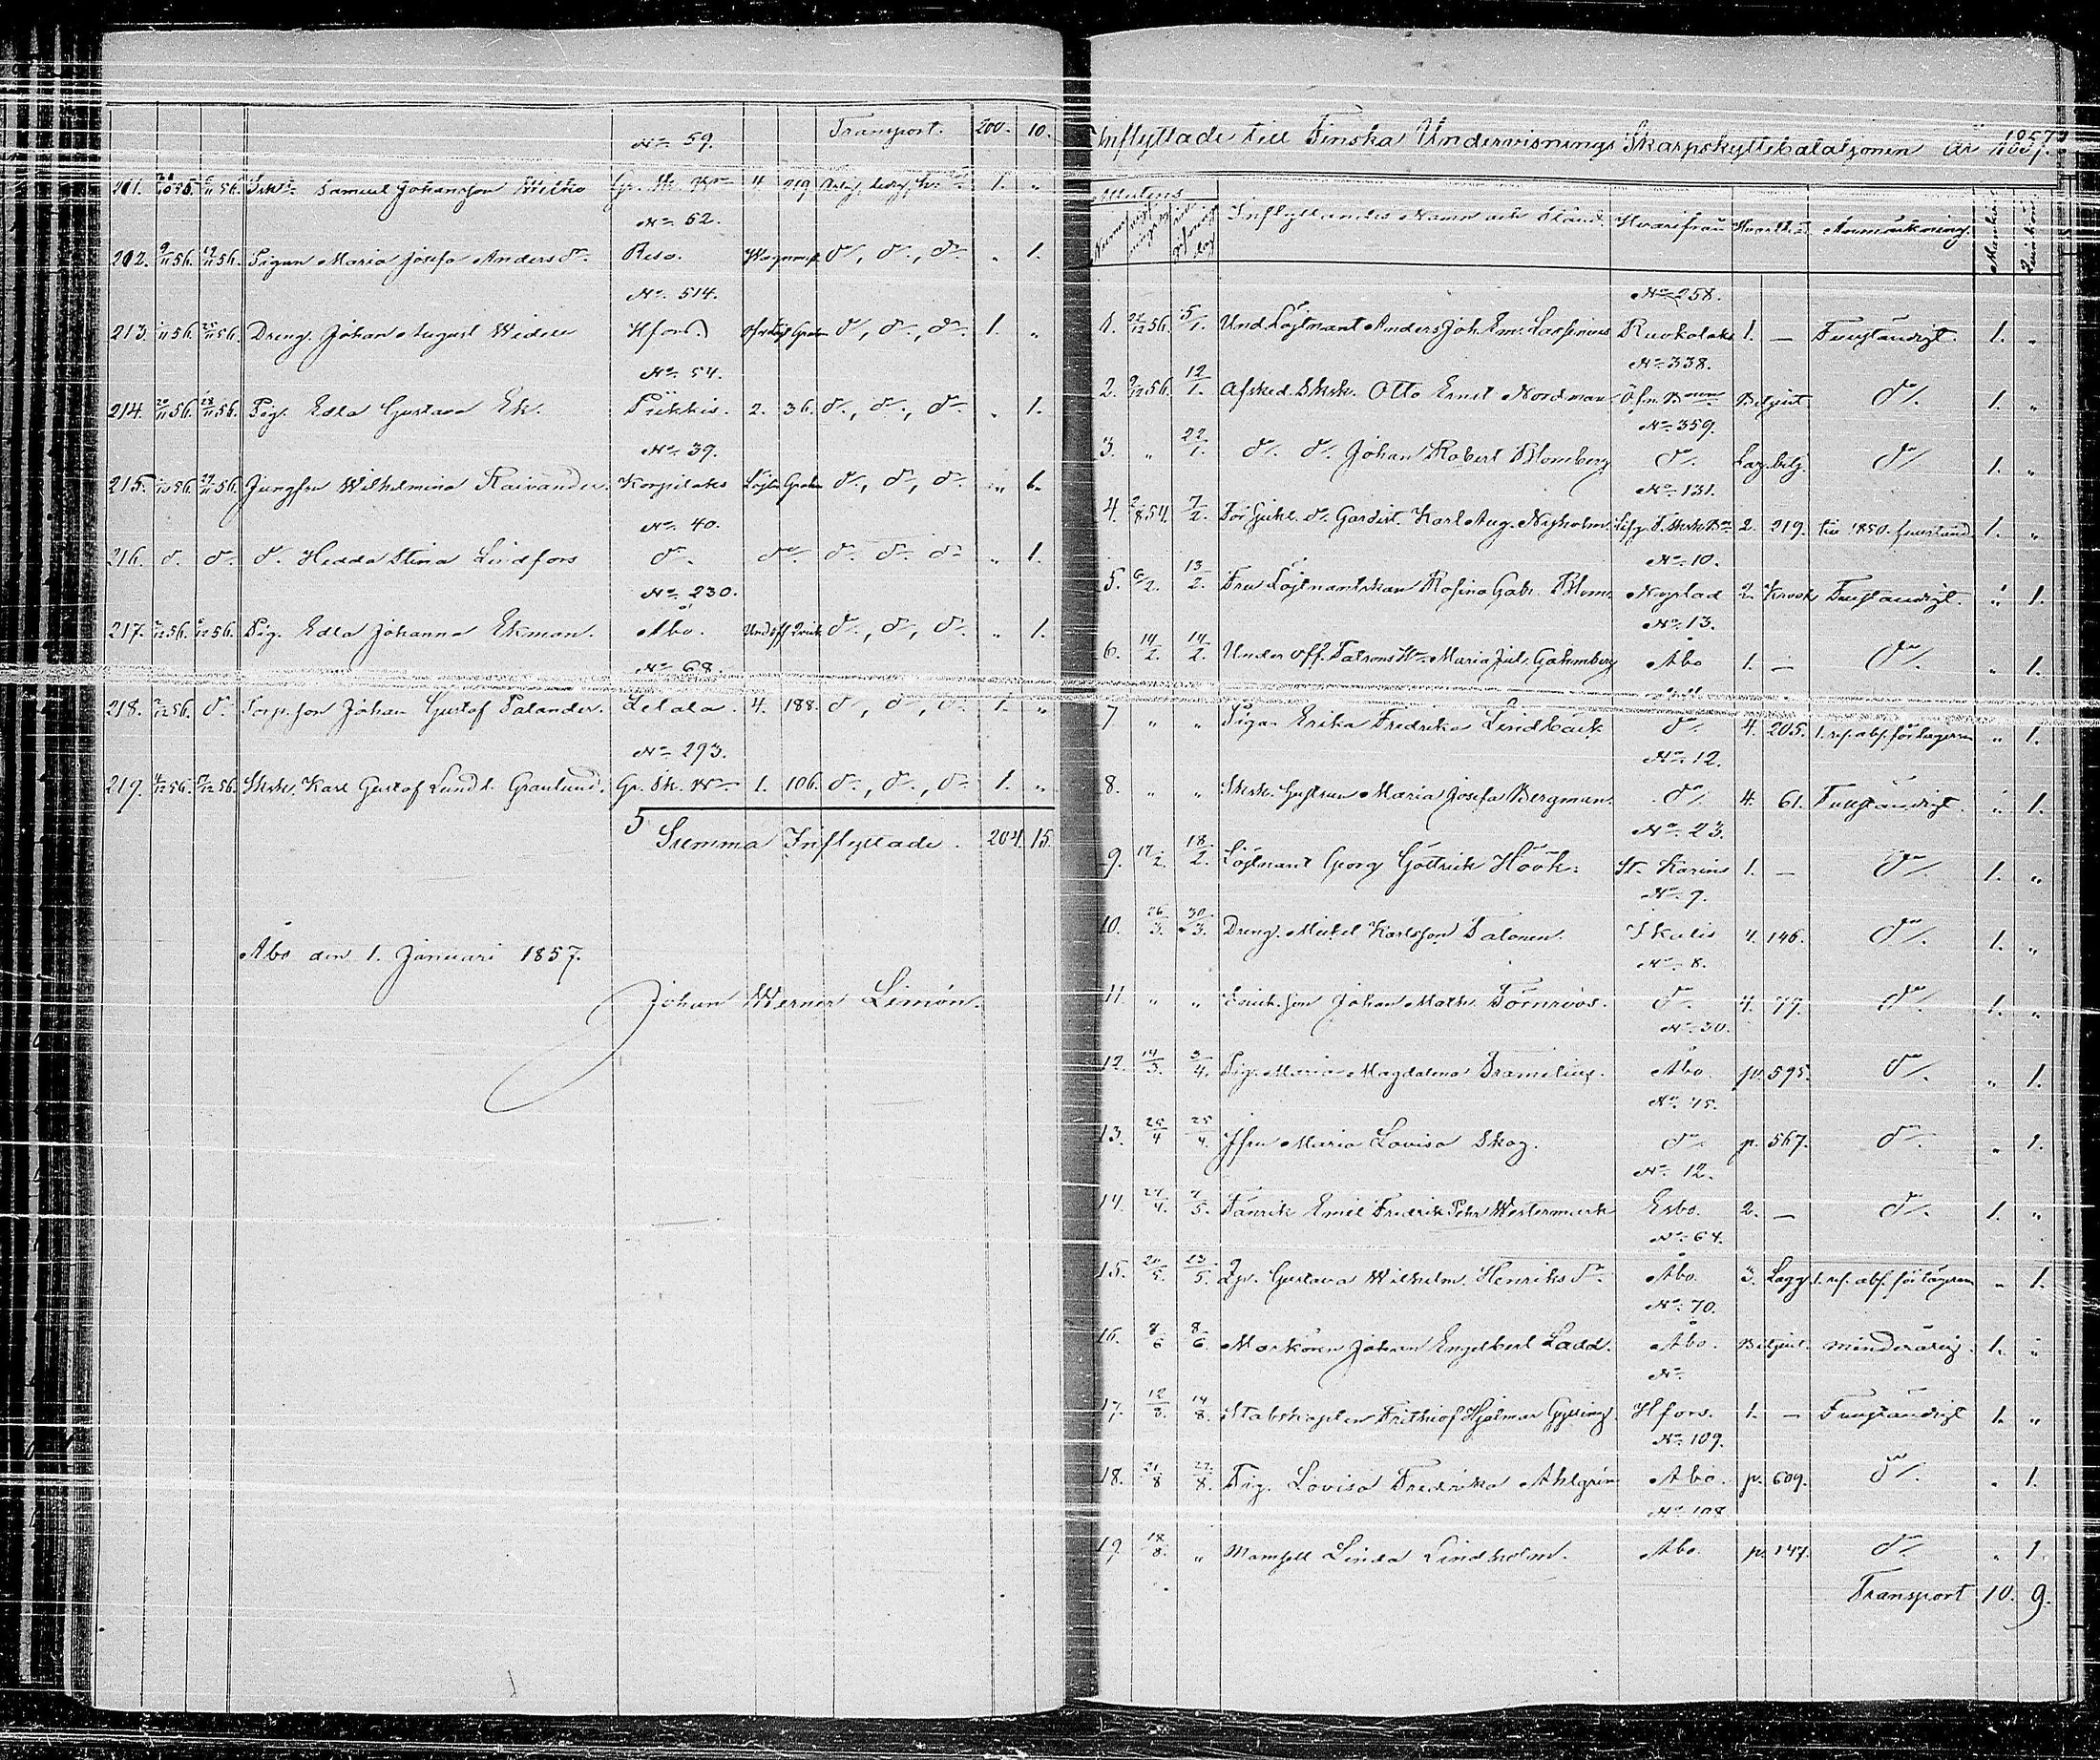 Transport. 200. 10.
No 59.
211. 56. Samuel Johansson 4. 219 1. "
No 62.
212. 9/11 56. 19/11 56. Pigan Maria Josefa Anders dr. Reso. do, do, do " 1.
No 514.
213. 56. 56. Dreng. Johan August Widell Hfors do, do, do 1. "
No 54.
214. 20/11 56. 28/11 56. Pig. Edla Gustava Ek. Pikkis. 2. 36. do, do, do " 1.
No 39.
215. 56. 56. Jungfru Wilhelmina Raivander. Korpilaks do, do, do " 1.
No 40.
216. do. do. do. Hedda Stina Lindfors do. do. do. do. do " 1.
No 230.
217. 56. 56. Pig. Edla Johanna Ekman. Åbo. do, do, do " 1.
No 68.
218. 56. do. Johan Gustaf Palander. Letala. 4. 188. do, do, do. 1. "
No 293.
219. 56. 56. Sksk. Karl Gustaf Lundt. Granlund. Gr. Sk. 1. 106. do, do, do 1. "
5
Summa Inflyttade. 204. 15.
Åbo den 1. Januari 1857.
Johan Werner Limón.
Inflyttade till Finska Undervisnings Skarpskyttebataljonen år 1857.
Attestens
Inflyttandes Namn och Stånd. Hvarifrån Hvarthän Anmärkning. Mankön Qvinkön
No 258.
1. 22/12 56. 5/1. Und. Löjtnant Anders Joh. Em. Ruokolaks 1. — Fullständigt. 1. "
No 338.
2. 9/12 56. 12/1. Afsked. Sksk. Otto Ernst Nordman do. 1. "
No 359.
3. " 22/1. do. do. Johan Robert Blomberg do. do. 1. "
No 131.
4. 2/8 54. 7/2. Gardist. Karl Aug. Nyholm. 2. 219. till 1850. 1. "
No 10.
5. 6/2. 13/2. Fru Löjtnantskan Rosina Gabr. Blom. Nystad 2. Fullständigt. " 1.
No 13.
6. 14/2. 14/2. Under off. Maria Jul. Gahmberg Åbo 1. — do. " 1.
7 " " Pigan Erika Fredrika Lindbäck do. 4. 205. " 1.
No 12.
8. " " Sksk. Hustrun Maria Josefa Bergman. do. 4. 61. Fullständigt. " 1.
No 23.
9. 17/2. 18/2. Löjtnant Georg Göttrich Höök. St. Karins 1. — do. 1. "
No 9.
10. 26/3. 30/3. Dreng. Mickel Karlsson Salonen. Ikalis 4. 146. do. 1. "
No 8.
11. " " Johan Törnroos. do. 4. 77. do. 1. "
No 30.
12. 14/3. 3/4. Pig. Maria Magdalena Åbo. p. 595. do. " 1.
No 45.
13. 25/4 25/4. Jfru Maria Lovisa Skog. do. p. 567. do. " 1.
No 12.
14. 27/4. 7/5. Fänrik Emil Fredrik Pehr Westermark Esbo. 2. — do. 1. "
No 64.
15. 20/5. 23/5. Gustava Wilhelm. Henriks dr. Åbo. 3. " 1.
No 70.
16. 8/6 8/6. Markören Johan Engelbert Ladd. Åbo. minderårig. 1. "
No
17. 12/8. 14/8. Stabskapten Frithiof Hjalmar Gylling. Hfors. 1. — Fullständigt 1. "
No 109.
18. 21/8 22/8. Pig. Lovisa Fredrika Ahlgrén Åbo. p. 609. do. " 1.
No 108
19. 18/8. " Mamsell Linda Lindholm. Åbo. p. 147. do. " 1.
Transport 10. 9.